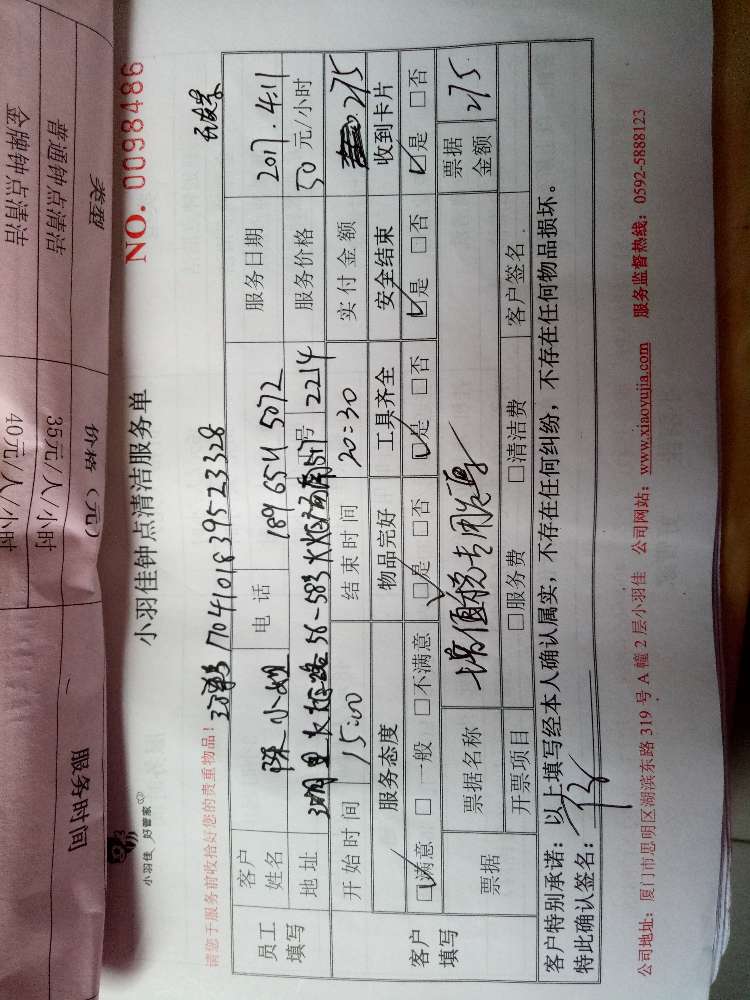 类型
价格（元）
服务时间
普通钟点清洁
35元/人/小时
金牌钟点清洁
40元/人/小时
小羽佳 好管家
小羽佳钟点清洁服务单
NO. 0098486
请您于服务前收拾好您的贵重物品!
170410183952 3328
员工填写
客户姓名
小姐
电话
189 6541 5072
服务日期
2017.4.11
地址
号
2214
服务价格
50元/小时
开始时间
15:00
结束时间
20:30
实付金额
275
客户填写
服务态度
物品完好
工具齐全
安全结束
收到卡片
☑满意 □一般 □不满意
☑是 □否
☑是 □否
☑是 □否
☑是 □否
票据
票据名称
增值税专用发票
票据金额
275
开票项目
□服务费 □清洁费
客户签名
客户特别承诺：以上填写经本人确认属实，不存在任何纠纷，不存在任何物品损坏。
特此确认签名：
公司地址：厦门市思明区湖滨东路 319 号 A 幢 2 层小羽佳 公司网站：www.xiaoyujia.com 服务监督热线：0592-5888123